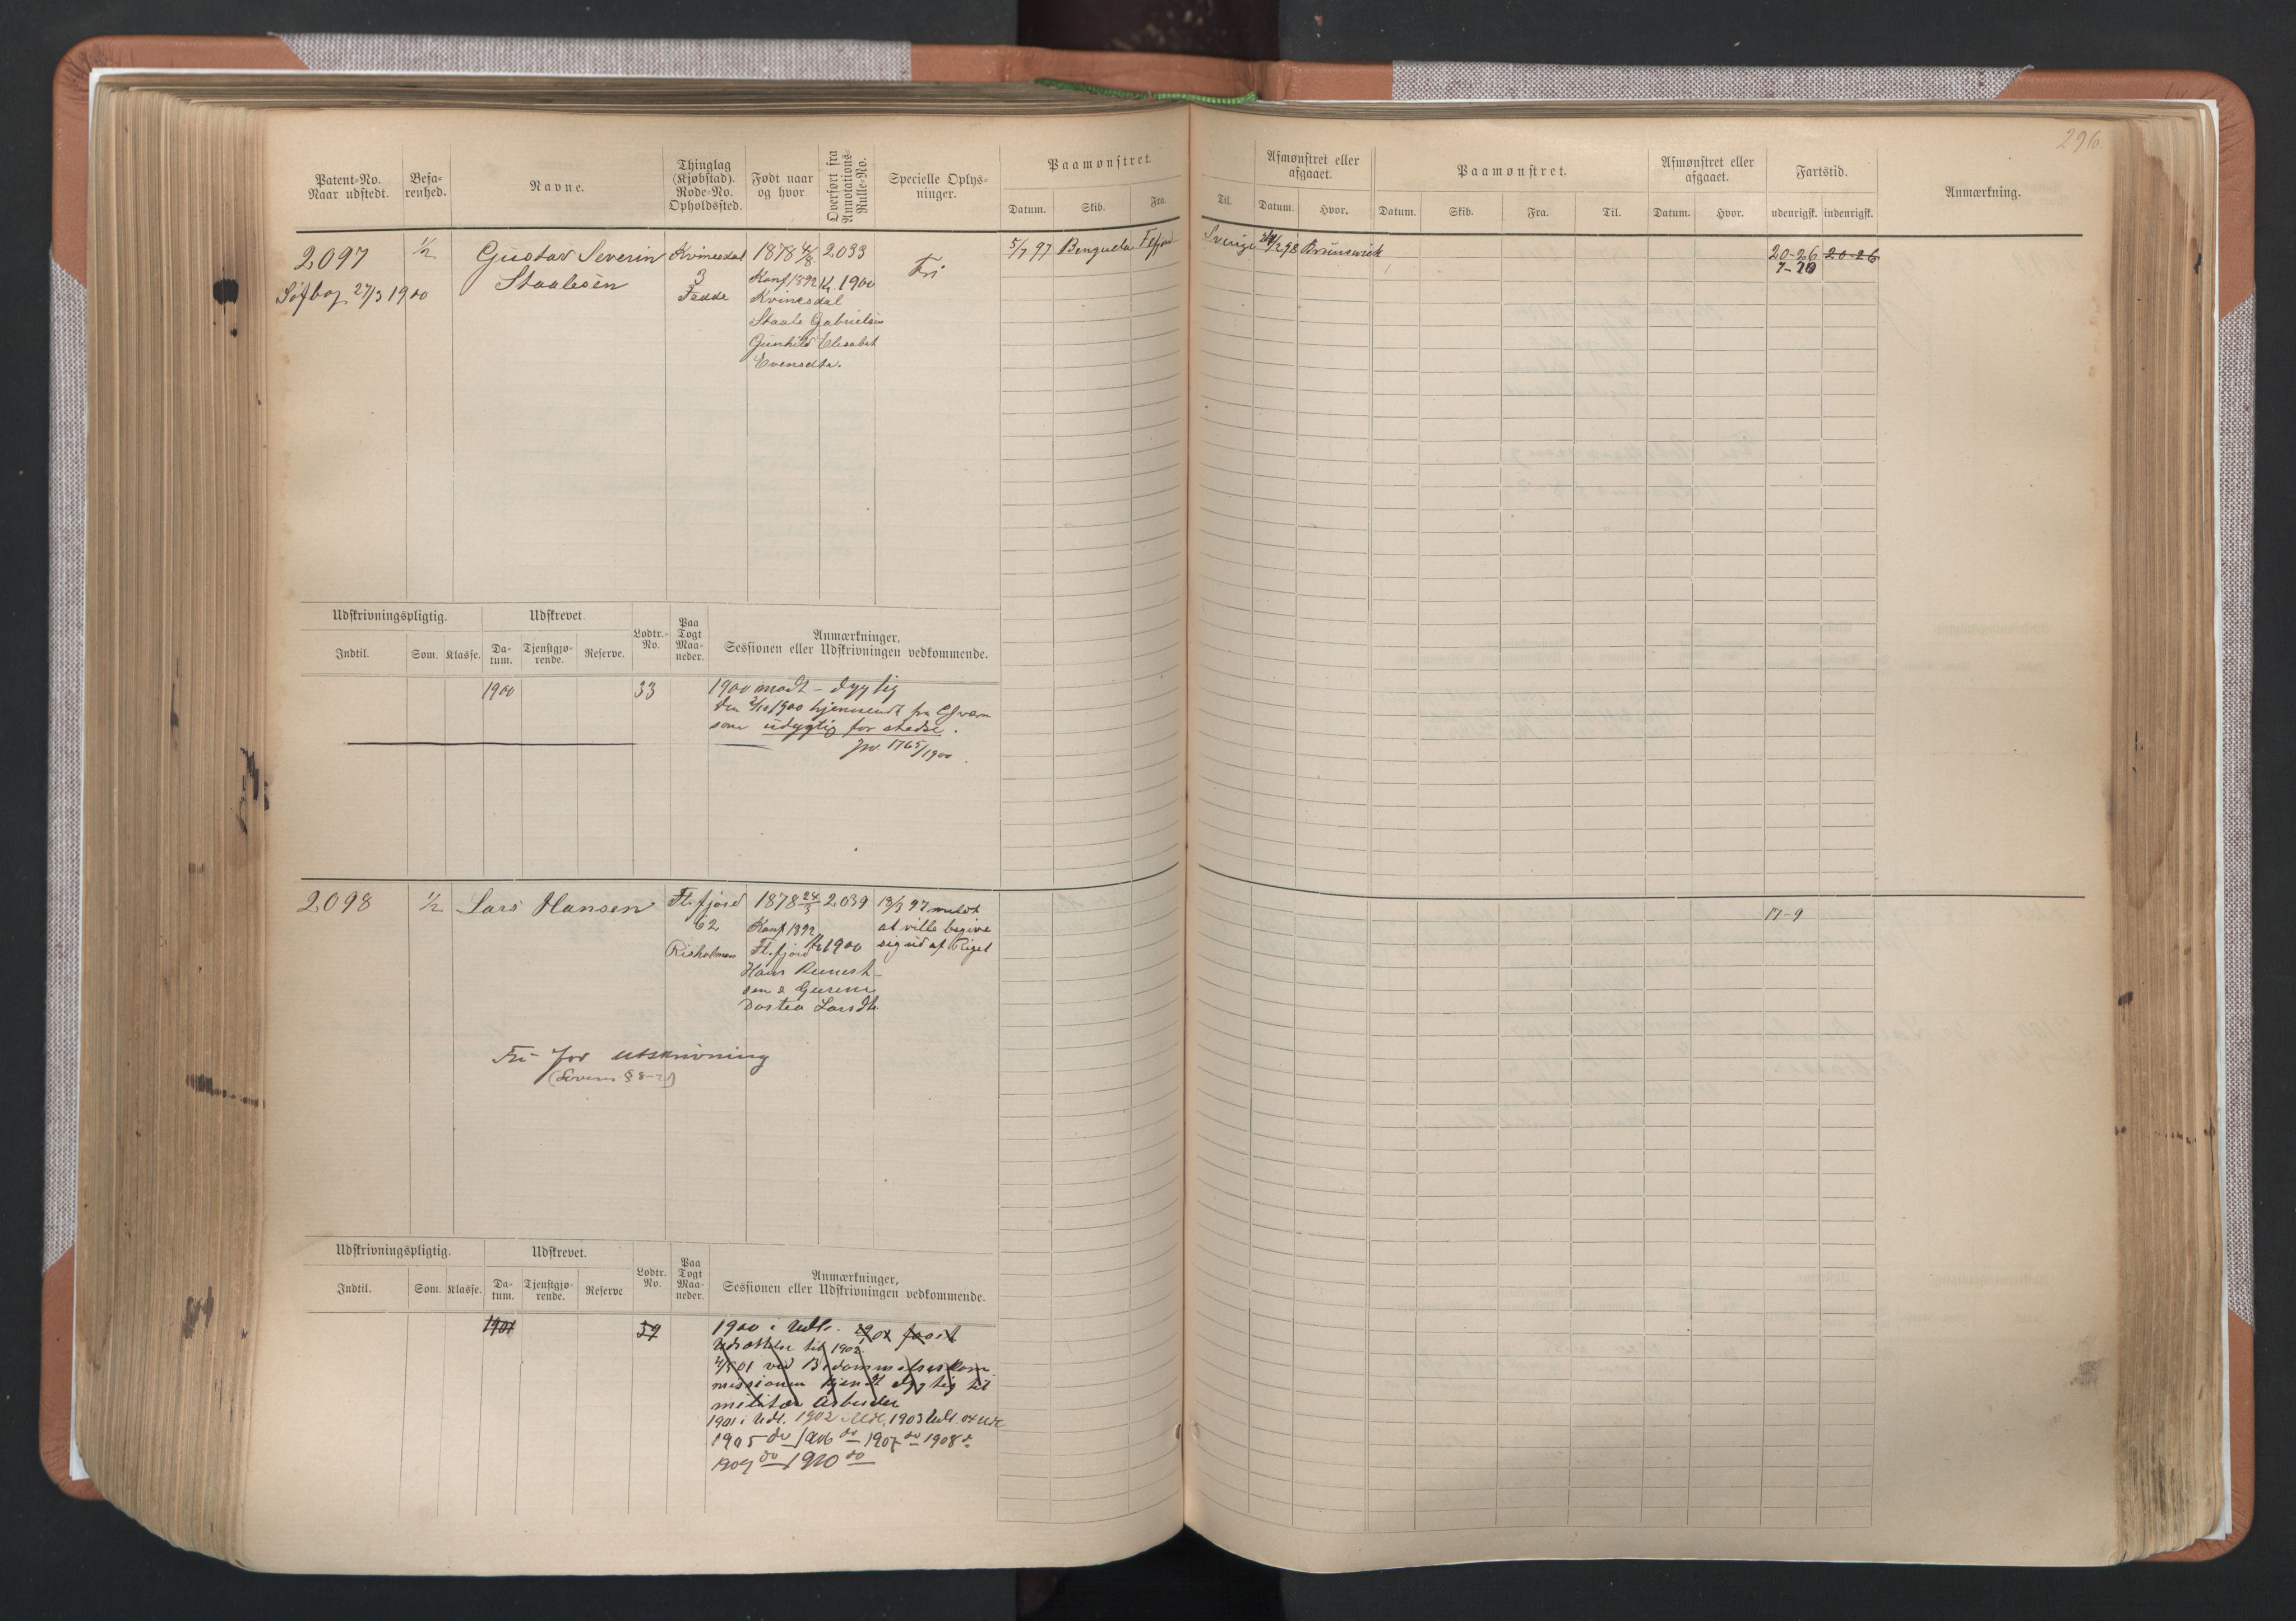 296.
Patent-No.
Naar udstedt.
Befa-
renhed.
Navne.
Thinglag
(Kjøbstad).
Rode-No.
Opholdssted.
Født naar
og hvor
Overført fra
Annotations-
Rulle-No.
Specielle Oplys-
ninger.
Paamønstret.
Datum.
Skib.
Fra.
Til.
Afmønstret eller
afgaaet.
Datum.
Hvor.
Paamønstret.
Datum.
Skib.
Fra.
Til.
Afmønstret eller
afgaaet.
Datum.
Hvor.
Fartstid.
udenrigsk.
indenrigsk.
Anmærkning.
2097
Søfbog 27/3 1900
1/2
Gustav Severin
Staalesen
Kvinesdal
3
Fedde
1878 4/8
Konf 1892
Kvinesdal
Staale Gabrielsen
Gunhild Elisabet
Evensdtr.
2033
1/1 1900
Fri
5/7 97 Benguela Flfjord
Sverige 2/2 98 Brunswick
20-26 20-26
7-20
Udskrivningspligtig.
Indtil.
Som.
Klasse.
Udskrevet
Da-
tum.
Tjenstgjø-
rende.
Reserve.
Lodtr.-
No.
Paa
Togt
Maa-
neder.
Anmærkninger,
Sessionen eller Udskrivningen vedkommende.
1900
33
1900 mødt - dygtig
den 2/10 1900 hjemsendt fra
som udygtig for stedse.
Jw. 1765/1900.
2098
1/2
Lars Hansen
Fl.fjord
62
Risholmen
1878 24/3
Konf 1892
Fl.fjord
Hans Reinert-
sen &
Dortea Larsdtr.
2039
1/1 1900
13/7 97 meldt
at ville begive
sig ud af Riget
17-9
Fri for utskrivning
(Lovens § 8-2)
Udskrivningspligtig.
Indtil.
Som.
Klasse.
Udskrevet.
Da-
tum.
Tjenstgjø-
rende.
Reserve
Lodtr.
No.
Paa
Togt
Maa-
neder.
Anmærkninger,
Sessionen eller Udskrivningen vedkommende.
1901
59
1900 i Udl. 1901 faaet
Udsættelse til 1902.
01 ved Bedømmelseskom-
missionen kjendt dygtig til
militær Arbeider
1901 i Udl. 1902 i Udl. 1903 Udl. 04 Udl
1905 do 1906 do 1907 do 1908 do
1909 do 1910 do